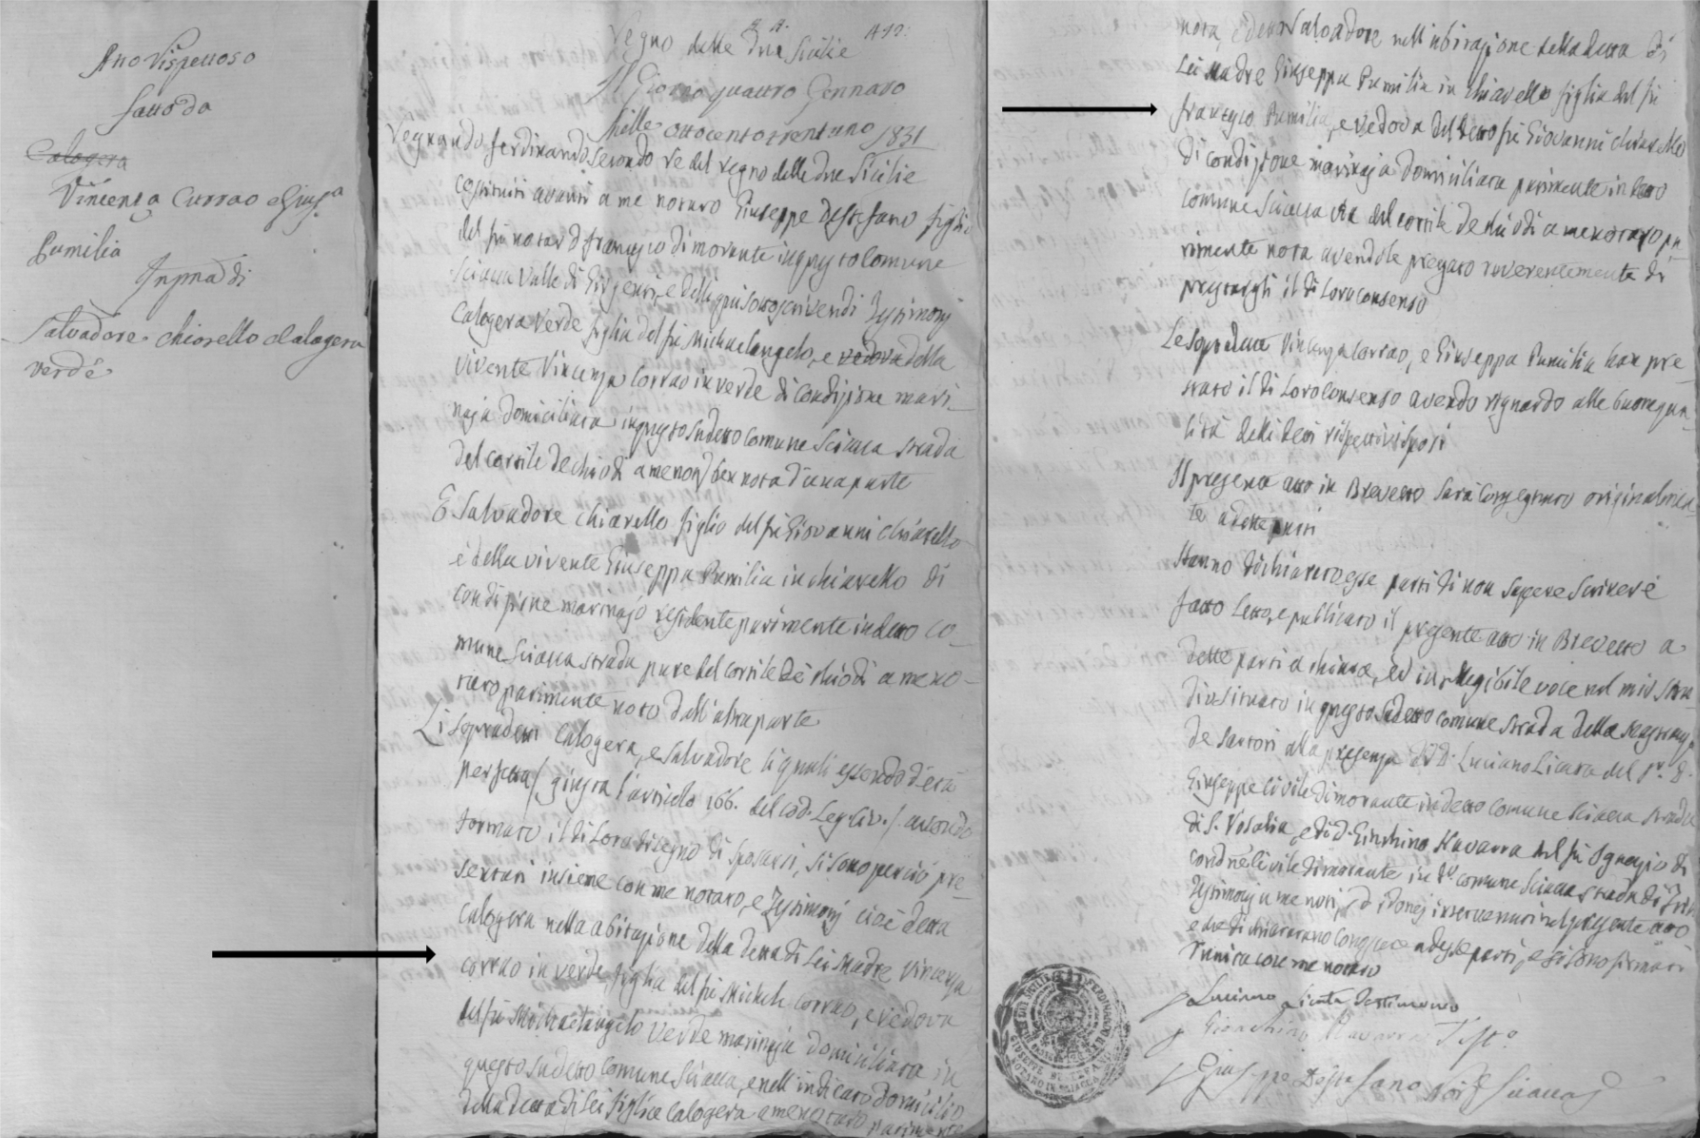 Atto Rispettoso
fatto da
Calogera
Vincenza Currao e Gius.a
Pumilia
In pma di
Salvadore Chiarello e Calogera
Verde
N 12.
Regno delle Due Sicilie
Il Giorno quattro Gennaro
Mille ottocentotrentuno 1831
Regnando Ferdinando Secondo Re del regno delle due Sicilie
costituiti avanti a me notaro Giuseppe Destefano figlio
del fu notar D. Francesco dimorante in questo Comune
Sciacca Valle di Girgenti, e delli qui sottoscrivendi Testimonj
Calogera Verde figlia del fu Michaelangelo, e vedova della
vivente Vincenza Corrao in Verde di condizione mari-
naja domiciliata in questo sudetto comune Sciacca strada
del cortile de chiodi a me not.o ben nota d'una parte
E Salvadore Chiarello figlio del fu Giovanni Chiarello
e della vivente Giuseppa Pumilia in Chiarello di
condizione marinajo residente parimente in detto co-
mune Sciacca strada pure del cortile de chiodi a me no-
taro parimente noto dell'altra parte
Li sopradetti Calogera, e Salvadore li quali essendo d'età
perfetta /. giusta l'articolo 166. del Cod. Leg. Civ. /. avendo
formato il di loro disegno di sposarsi, si sono perciò pre-
sentati insieme con me notaro, e Testimonj cioè detta
Calogera nella abitazione della detta di lei Madre Vincenza
Corrao in Verde figlia del fu Michele Corrao, e vedova
del fu Michaelangelo Verde marinaja domiciliata in
questo sudetto comune Sciacca, e nell'indicato domicilio
della detta di lei figlia Calogera a me notaro parimente
nota, e detto Salvadore nell'abitazione della detta di
Lei Madre Giuseppa Pumilia in Chiarello figlia del fu
Francesco Pumilia, e vedova del detto fu Giovanni Chiarello
di condizione marinaja domiciliata parimente in detto
comune Sciacca via del cortile de chiodi a me notaro pa-
rimente nota avendole pregato reverentemente di
prestargli il di loro consenso
Le sopradette Vincenza Corrao, e Giuseppa Pumilia han pre-
stato il di loro consenso avendo riguardo alle buone qua-
lità delli detti rispettivi sposi
Il presente atto in Brevetto sarà consegnato originalmen-
te a dette parti
Hanno dichiarato esse parti di non sapere scrivere
Fatto letto, e publicato il presente atto in Brevetto a
dette parti a chiara, ed intelligibile voce nel mio stu-
dio situato in questo sudetto comune strada della
de Sartori alla presenza di D. Luciano Licata del
Giuseppe civile dimorante in detto comune Sciacca strada
di S. Rosalia, e di D. Giachino Navarra del fu Ignazio di
condne civile dimorante in do comune Sciacca strada di
Testimonj a me noti, ed idonej intervenuti nel presente atto
e che dichiararono conoscere ad esse parti, e si sono firmati
unita con me notaro
Luciano Licata Testimonio
Gioachino Navarra Testo
Giuseppe Destefano Not. Sciacca